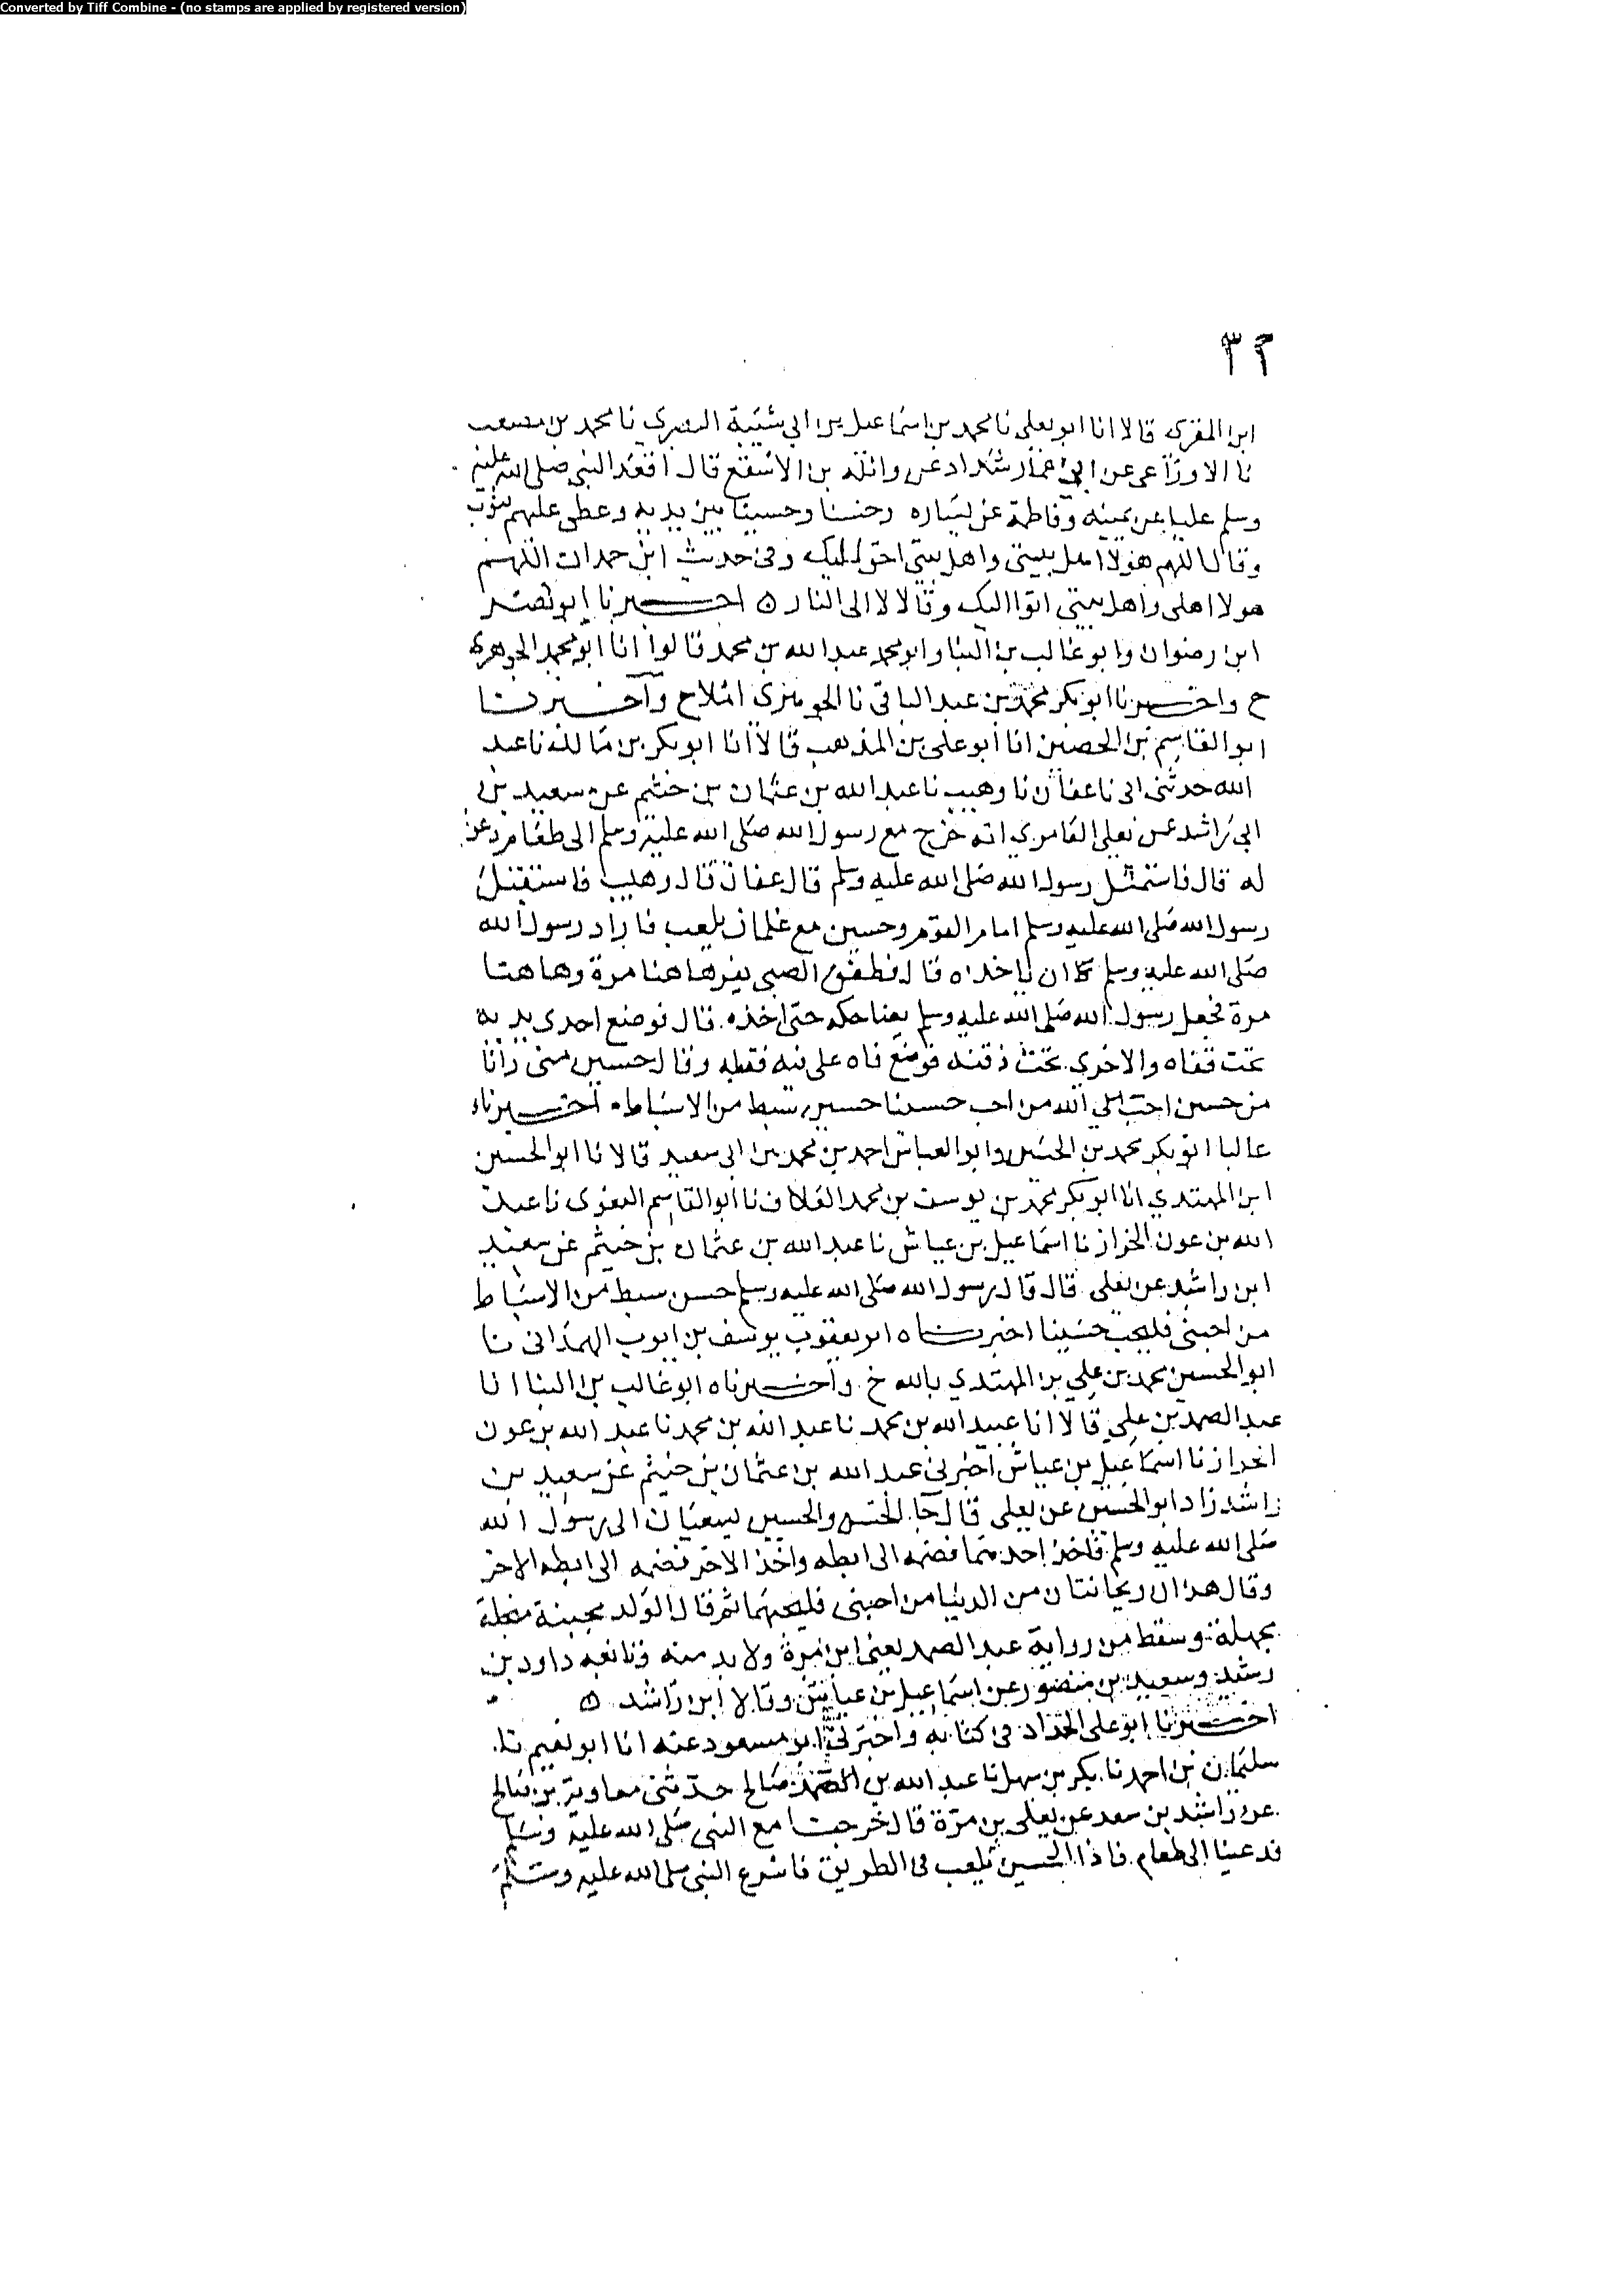 Converted by Tiff Combine - (no stamps are applied by registered version)
٣٢
ابن المقرى قالا انا ابو يعلى نا محمد بن اسماعيل بن ابي شيبة البصري نا محمد بن مصعب
نا الاوزاعي عن ابي عمار شداد عن واثلة بن الاسقع قال اقعد النبي صلى الله عليه
وسلم عليا عن يمينه وفاطمة عن يساره وحسنا وحسينا بين يديه وغطى عليهم بثوب
وقال اللهم هولا اهل بيتي واهل بيتي احق اليك وفي حديث ابن حمدان اللهم
هولا اهلي واهل بيتي اتوا اليك وقالا لا الى النار ٥ اخبرنا ابو نصر
ابن رضوان وابو غالب بن البنا وابو محمد عبد الله بن محمد قالوا انا ابو محمد الجوهري
ح واخبرنا ابو بكر محمد بن عبد الباقي نا الجوهري املاح واخبرنا
ابو القاسم بن الحصين انا ابو علي بن المذهب قالا انا ابو بكر بن مالك نا عبد
الله حدثني ابي نا عفان نا وهيب نا عبد الله بن عثمان بن خثيم عن سعيد بن
ابي راشد عن يعلى العامري انه خرج مع رسول الله صلى الله عليه وسلم الى طعام دعو
له قال فاستمثل رسول الله صلى الله عليه وسلم قال عفان قال وهيب فاستقبل
رسول الله صلى الله عليه وسلم امام القوم وحسين مع غلمان يلعب فاراد رسول الله
صلى الله عليه وسلم ان ياخذه قال فطفق الصبي يفر هاهنا مرة وهاهنا
مرة فجعل رسول الله صلى الله عليه وسلم يضاحكه حتى اخذه قال فوضع احدى يديه
تحت قفاه والاخرى تحت ذقنه فوضع فاه على فيه فقبله وقال حسين مني وانا
من حسين احب الله من احب حسينا حسين سبط من الاسباط اخبرناه
عاليا ابو بكر محمد بن الحسين وابو العباس احمد بن محمد بن ابي سعيد قالا نا ابو الحسين
ابن المهتدي انا ابو بكر محمد بن يوسف بن محمد العلاف نا ابو القاسم البغوى نا عبد
الله بن عون الخراز نا اسماعيل بن عياش نا عبد الله بن عثمان بن خثيم عن سعيد
ابن راشد عن يعلى قال قال رسول الله صلى الله عليه وسلم حسين سبط من الاسباط
من احبني فليحب حسينا اخبرناه ابو يعقوب يوسف بن ايوب الهمذاني نا
ابو الحسين محمد بن علي بن المهتدي بالله ح واخبرناه ابو غالب بن البنا انا
عبد الصمد بن علي قالا انا عبيد الله بن محمد نا عبد الله بن محمد نا عبد الله بن عون
الخراز نا اسماعيل بن عياش اخبرني عبد الله بن عثمان بن خثيم عن سعيد بن
راشد زاد ابو الحسين عن يعلى قال جا الحسن والحسين يسعيان الى رسول الله
صلى الله عليه وسلم فاخذ احدهما فضمه الى ابطه واخذ الاخر فضمه الى ابطه الاخر
وقال هذان ريحانتان من الدنيا من احبني فليحبهما ثم قال الولد مجبنة مبخلة
مجهلة وسقط من رواية عبد الصمد يعني ابن مرة ولا بد منه وتابعه داود بن
رشيد وسعيد بن منصور عن اسماعيل بن عياش وقالا ابن راشد ٥
اخبرنا ابو علي الحداد في كتابه واخبرني ابو مسعود عنه انا ابو نعيم نا
سليمان بن احمد نا بكر بن سهل نا عبد الله بن صالح حدثني معاوية بن صالح
عن راشد بن سعد عن يعلى بن مرة قال خرجنا مع النبي صلى الله عليه وسلم
فدعينا الى طعام فاذا الحسين يلعب في الطريق فاسرع النبي صلى الله عليه وسلم